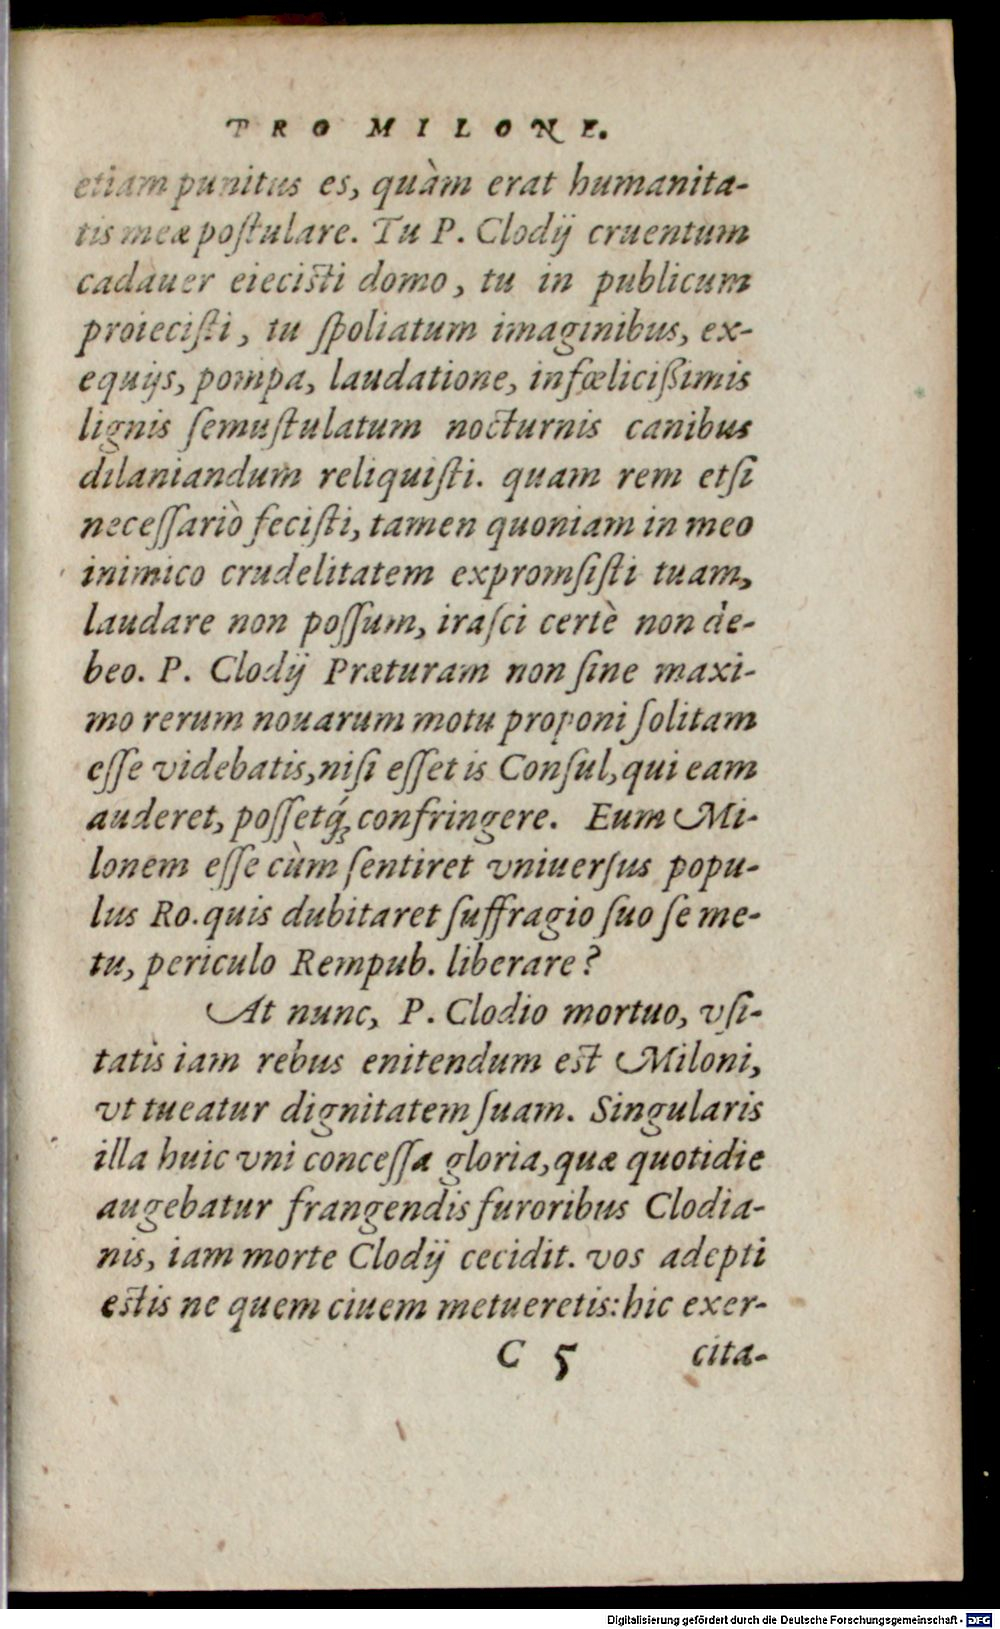 PRO MILONE.
etiam punitus es, quàm erat humanita-
tis meæ poſtulare. Tu P. Clodij cruentum
cadauer eieciſti domo, tu in publicum
proieciſti, tu ſpoliatum imaginibus, ex-
equijs, pompa, laudatione, infœliciſſimis
lignis ſemuſtulatum nocturnis canibus
dilaniandum reliquiſti. quam rem etſi
neceſſariò feciſti, tamen quoniam in meo
inimico crudelitatem expromſiſti tuam,
laudare non poſſum, iraſci certè non de-
beo. P. Clodij Præturam non ſine maxi-
mo rerum nouarum motu proponi ſolitam
eſſe videbatis, niſi eſſet is Conſul, qui eam
auderet, poſſetq́; confringere. Eum Mi-
lonem eſſe cùm ſentiret vniuerſus popu-
lus Ro. quis dubitaret ſuffragio ſuo ſe me-
tu, periculo Rempub. liberare?
At nunc, P. Clodio mortuo, vſi-
tatis iam rebus enitendum est Miloni,
vt tueatur dignitatem ſuam. Singularis
illa huic vni conceſſa gloria, quæ quotidie
augebatur frangendis furoribus Clodia-
nis, iam morte Clodij cecidit. vos adepti
estis ne quem ciuem metueretis: hic exer-
C 5 cita-
Digitalisierung gefördert durch die Deutsche Forschungsgemeinschaft - DFG